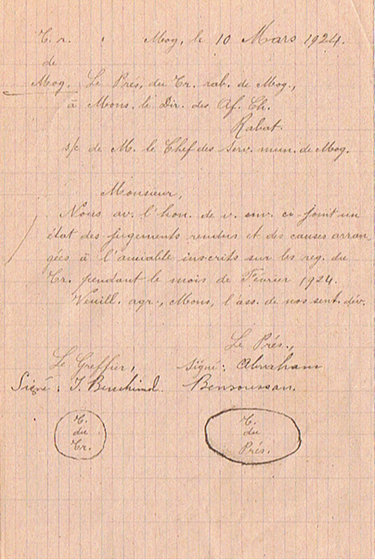 T. r. Mog, le 10 Mars 1924.
de
Mog. Le Pres. du Tr. rab. de Mog.,
à Mons. le Dir. des Af. Ch.
Rabat
s/c de M. le Chef des Serv. mun. de Mog.
Monsieur,
Nous av. l'hon. de v. env. ci-joint un
état des jugements rendus et des causes arran
gées à l'amiable inscrits sur les reg. du
Tr. pendant le mois de Février 1924.
Veuill. agr., Mons, l'ass. de nos sent. div.
Le Prés.,
Le Greffier, Signé: Abraham
Signé: J. Bensoussan.
T.
du
Tr.
T.
du
Prés.